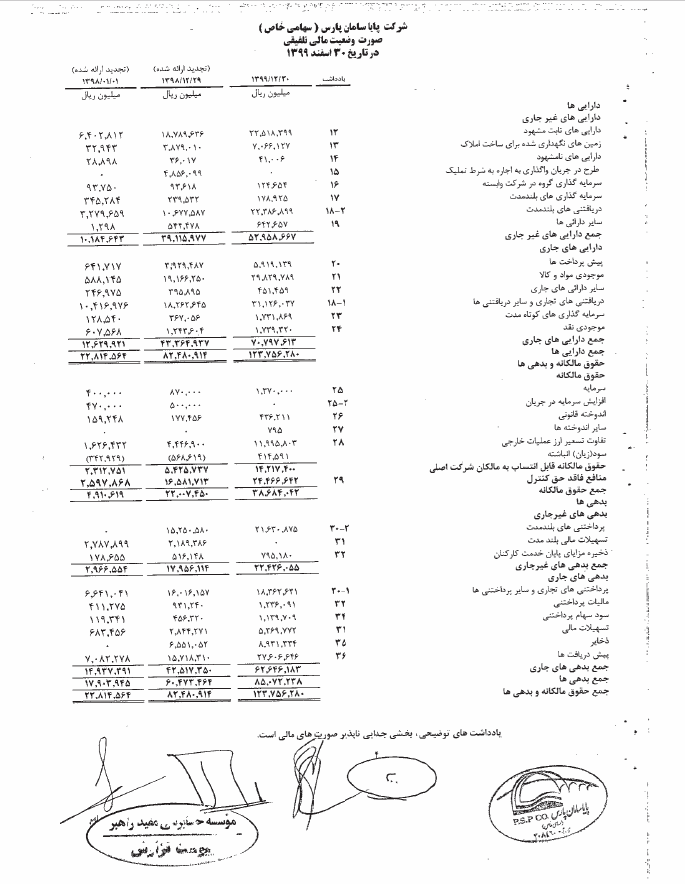 شرکت پایا سامان پارس ( سهامی خاص )
صورت وضعیت مالی تلفیقی
در تاریخ ۳۰ اسفند ۱۳۹۹
یادداشت ۱۳۹۹/۱۲/۳۰ (تجدید ارائه شده) ۱۳۹۸/۱۲/۲۹ (تجدید ارائه شده) ۱۳۹۸/۰۱/۰۱
میلیون ریال میلیون ریال میلیون ریال
دارایی ها
دارایی های غیر جاری
دارایی های ثابت مشهود ۱۲ ۲۲,۵۱۸,۳۹۹ ۱۸,۷۸۹,۶۳۶ ۶,۴۰۲,۸۱۲
زمین های نگهداری شده برای ساخت املاک ۱۳ ۷,۰۶۶,۱۲۷ ۳,۸۷۹,۰۱۰ ۳۲,۹۴۳
دارایی های نامشهود ۱۴ ۴۱,۰۰۶ ۳۶,۰۱۷ ۲۸,۸۹۸
طرح در جریان واگذاری به اجاره به شرط تملیک ۱۵ ۰ ۴,۸۵۶,۰۹۹ ۰
سرمایه گذاری گروه در شرکت وابسته ۱۶ ۱۲۴,۶۵۴ ۹۳,۶۱۸ ۹۳,۷۵۰
سرمایه گذاری های بلندمدت ۱۷ ۱۷۸,۹۲۵ ۲۳۹,۵۳۲ ۳۴۵,۲۸۴
دریافتنی های بلندمدت ۱۸-۲ ۲۲,۳۸۶,۸۹۹ ۱۰,۶۷۷,۵۸۷ ۳,۲۷۹,۶۵۹
سایر دارائی ها ۱۹ ۶۴۲,۶۵۷ ۵۴۴,۴۷۸ ۱,۲۹۸
جمع دارایی های غیر جاری ۵۲,۹۵۸,۶۶۷ ۳۹,۱۱۵,۹۷۷ ۱۰,۱۸۴,۶۴۳
دارایی های جاری
پیش پرداخت ها ۲۰ ۵,۹۱۹,۱۳۹ ۳,۹۲۹,۴۸۷ ۶۴۱,۷۱۷
موجودی مواد و کالا ۲۱ ۲۹,۸۲۹,۷۸۹ ۱۹,۱۶۶,۲۵۰ ۵۸۸,۱۴۵
سایر دارائی های جاری ۲۲ ۴۵۱,۴۵۹ ۳۹۵,۸۹۵ ۲۴۶,۹۷۵
دریافتنی های تجاری و سایر دریافتنی ها ۱۸-۱ ۳۱,۱۲۶,۰۳۷ ۱۸,۲۶۲,۶۴۵ ۱۰,۴۱۶,۹۷۶
سرمایه گذاری های کوتاه مدت ۲۳ ۱,۷۳۱,۸۶۹ ۳۶۷,۰۵۶ ۱۲۸,۵۴۰
موجودی نقد ۲۴ ۱,۷۳۹,۳۲۰ ۱,۲۴۳,۶۰۴ ۶۰۷,۵۶۸
جمع دارایی های جاری ۷۰,۷۹۷,۶۱۳ ۴۳,۳۶۴,۹۳۷ ۱۲,۶۲۹,۹۲۱
جمع دارایی ها ۱۲۳,۷۵۶,۲۸۰ ۸۲,۴۸۰,۹۱۴ ۲۲,۸۱۴,۵۶۴
حقوق مالکانه و بدهی ها
حقوق مالکانه
سرمایه ۲۵ ۱,۳۷۰,۰۰۰ ۸۷۰,۰۰۰ ۴۰۰,۰۰۰
افزایش سرمایه در جریان ۲۵-۲ ۰ ۵۰۰,۰۰۰ ۴۷۰,۰۰۰
اندوخته قانونی ۲۶ ۴۳۶,۲۱۱ ۱۷۷,۴۵۶ ۱۵۹,۲۴۸
سایر اندوخته ها ۲۷ ۷۹۵ ۰ ۰
تفاوت تسعیر ارز عملیات خارجی ۲۸ ۱۱,۹۹۵,۸۰۳ ۴,۴۴۶,۹۰۰ ۱,۶۲۶,۴۳۲
سود(زیان) انباشته ۴۱۴,۵۹۱ (۵۶۸,۶۱۹) (۳۴۲,۹۲۹)
حقوق مالکانه قابل انتساب به مالکان شرکت اصلی ۱۴,۲۱۷,۴۰۰ ۵,۴۲۵,۷۳۷ ۲,۳۱۲,۷۵۱
منافع فاقد حق کنترل ۲۹ ۲۴,۴۶۶,۶۴۲ ۱۶,۵۸۱,۷۱۳ ۲,۵۹۷,۸۶۸
جمع حقوق مالکانه ۳۸,۶۸۴,۰۴۲ ۲۲,۰۰۷,۴۵۰ ۴,۹۱۰,۶۱۹
بدهی ها
بدهی های غیرجاری
پرداختنی های بلندمدت ۳۰-۲ ۲۱,۶۳۰,۸۷۵ ۱۵,۲۵۰,۵۸۰ ۰
تسهیلات مالی بلند مدت ۳۱ ۰ ۲,۱۸۹,۳۸۶ ۲,۷۸۷,۸۹۹
ذخیره مزایای پایان خدمت کارکنان ۳۲ ۷۹۵,۱۸۰ ۵۱۶,۱۴۸ ۱۷۸,۶۵۵
جمع بدهی های غیرجاری ۲۲,۴۲۶,۰۵۵ ۱۷,۹۵۶,۱۱۴ ۲,۹۶۶,۵۵۴
بدهی های جاری
پرداختنی های تجاری و سایر پرداختنی ها ۳۰-۱ ۱۸,۳۶۲,۶۳۱ ۱۶,۰۱۶,۱۵۷ ۶,۶۴۱,۰۴۱
مالیات پرداختنی ۳۳ ۱,۲۳۶,۰۹۱ ۹۳۱,۲۴۰ ۴۱۱,۲۷۵
سود سهام پرداختنی ۳۴ ۱,۱۳۹,۷۰۹ ۴۵۶,۳۲۰ ۱۱۹,۳۴۱
تسهیلات مالی ۳۱ ۵,۳۶۹,۷۷۲ ۲,۸۴۴,۲۷۱ ۶۸۳,۴۵۶
ذخایر ۳۵ ۸,۹۳۱,۳۳۴ ۶,۵۵۱,۰۵۲ ۰
پیش دریافت ها ۳۶ ۲۷,۶۰۶,۶۴۶ ۱۵,۷۱۸,۳۱۰ ۷,۰۸۲,۲۷۸
جمع بدهی های جاری ۶۲,۶۴۶,۱۸۳ ۴۲,۵۱۷,۳۵۰ ۱۴,۹۳۷,۳۹۱
جمع بدهی ها ۸۵,۰۷۲,۲۳۸ ۶۰,۴۷۳,۴۶۴ ۱۷,۹۰۳,۹۴۵
جمع حقوق مالکانه و بدهی ها ۱۲۳,۷۵۶,۲۸۰ ۸۲,۴۸۰,۹۱۴ ۲۲,۸۱۴,۵۶۴
یادداشت های توضیحی، بخشی جدایی ناپذیر صورت های مالی است.
موسسه حسابرسی مفید راهبر
پیوست گزارش
پایا سامان پارس
P.S.P CO.